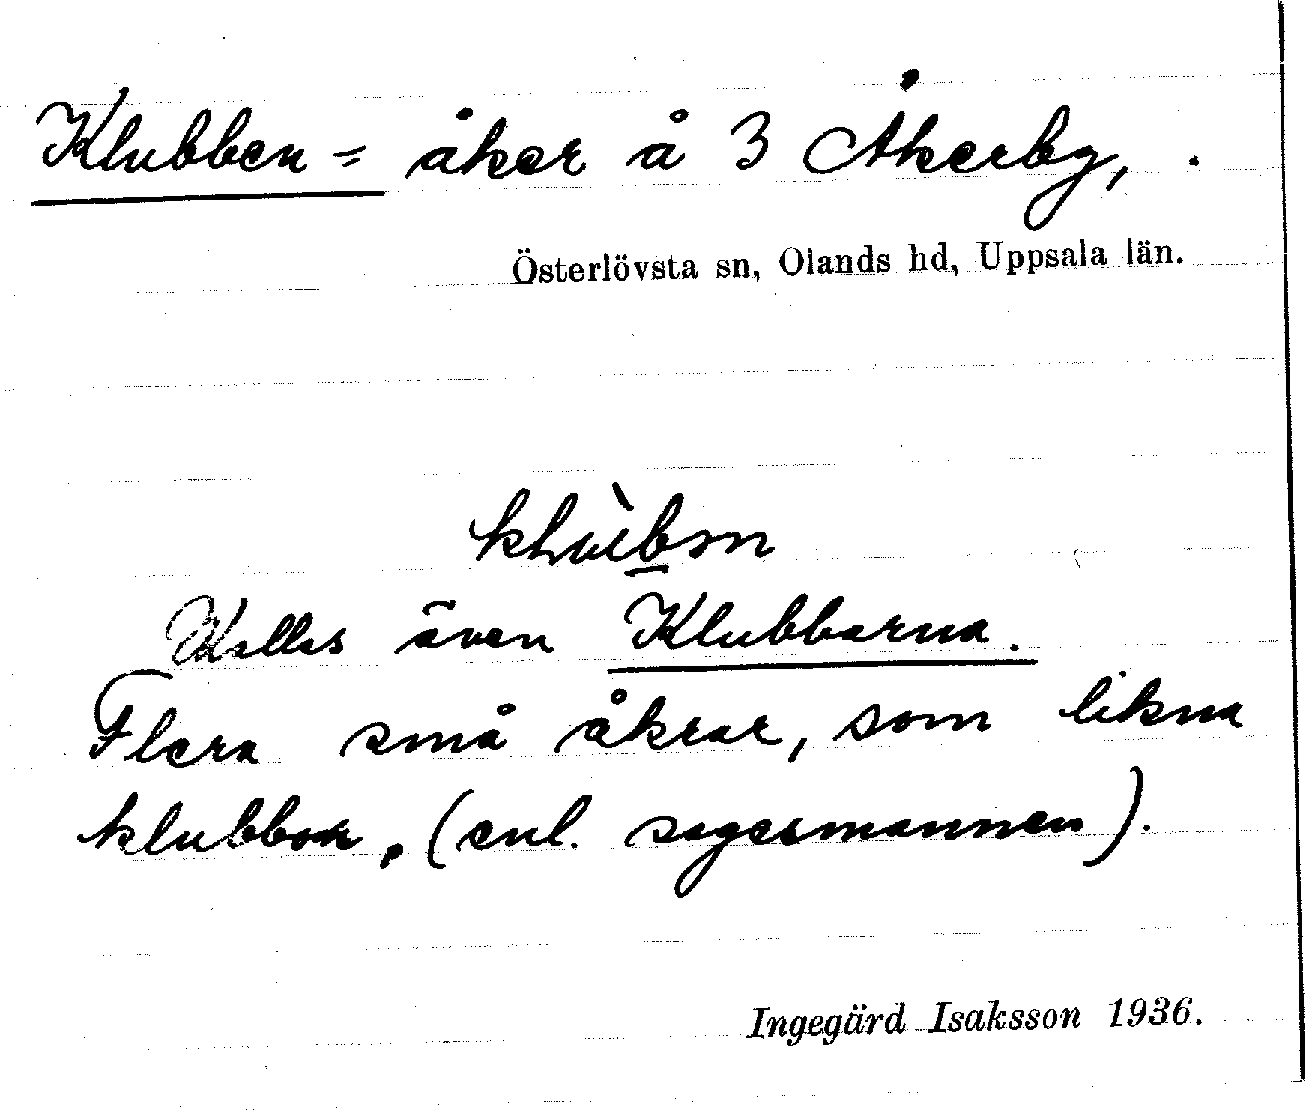 Klubben = åker å 3 Åkerby, .
Österlövsta sn, Olands hd, Uppsala län.
Kallas även Klubbarna.
Flera små åkrar, som likna
klubbor, (enl. sagesmannen).
Ingegärd Isaksson 1936.